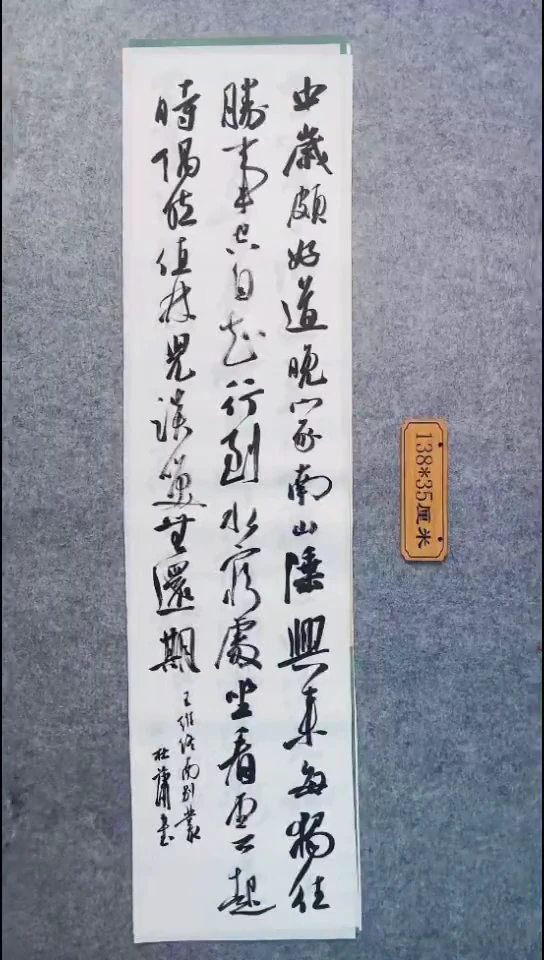 中歲頗好道晚家南山陲興來每獨往
勝事空自知行到水窮處坐看雲起
時偶然值林叟談笑無還期
王維終南別業
杜書
138*35厘米